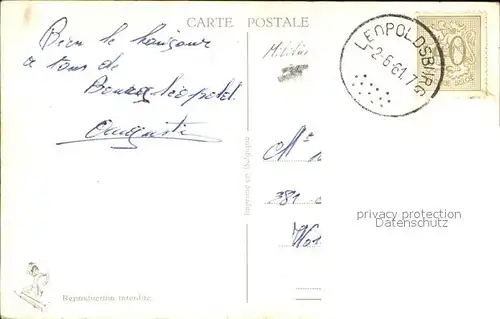 CARTE POSTALE
Bien le bonjour
a tous de
Bourg-Léopold.
LEOPOLDSBURG
-2-6-61.7
Imprimé en Belgique
381
privacy protection
DDATENSCHUTZ
Reproduction interdite.